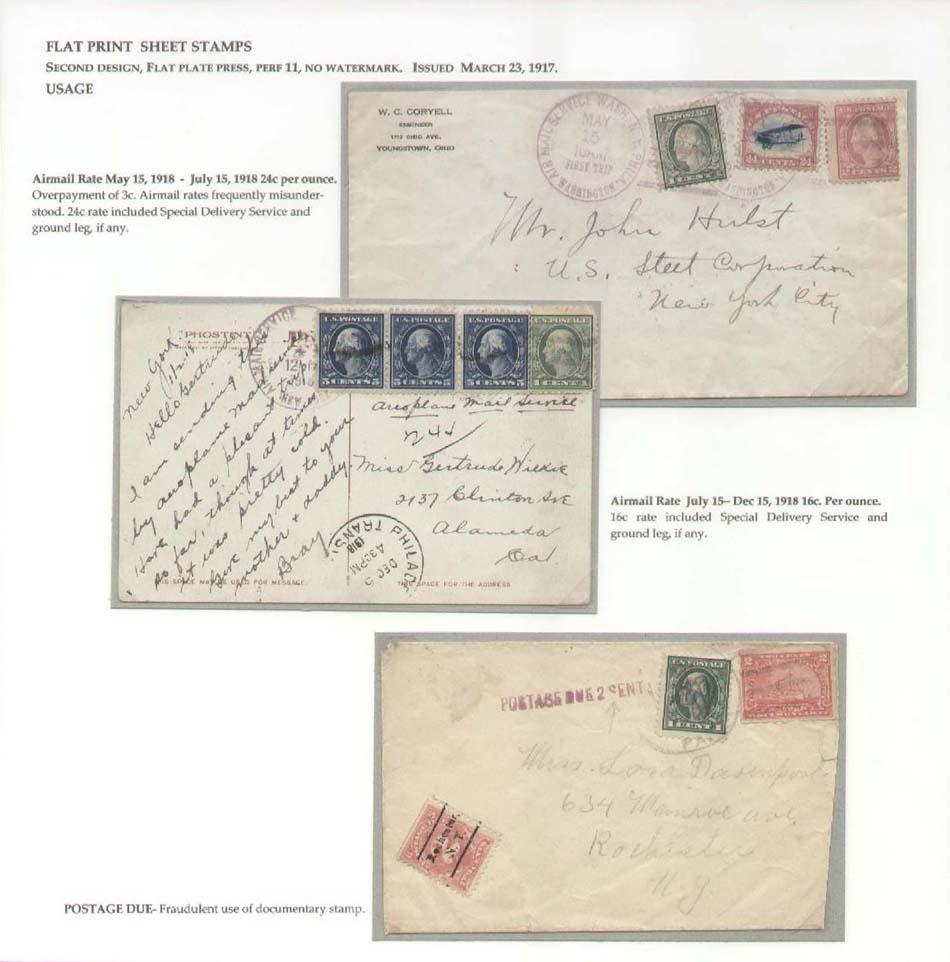 FLAT PRINT SHEET STAMPS
SECOND DESIGN, FLAT PLATE PRESS, PERF 11, NO WATERMARK. ISSUED MARCH 23, 1917.
USAGE
W. C. CORYELL
ENGINEER
YOUNGSTOWN, OHIO
AIR MAIL SERVICE WASH. N.Y. PHILA.
MAY
15
FIRST TRIP
WASHINGTON
U.S. POSTAGE
1 CENT 1
U.S. POSTAGE
24 CENTS 24
U.S. POSTAGE
2 CENTS 2
Airmail Rate May 15, 1918 - July 15, 1918 24c per ounce.
Overpayment of 3c. Airmail rates frequently misunder-
stood. 24c rate included Special Delivery Service and
ground leg, if any.
Mr. John Hulst
U.S. Steel Corporation
New York City
PHOSTINT
U.S. POSTAGE
5 CENTS 5
U.S. POSTAGE
5 CENTS 5
U.S. POSTAGE
5 CENTS 5
U.S. POSTAGE
1 CENT 1
New York
Hello Gertrude
I am sending this
by aeroplane mail
Have had a pleasant trip
so far, though at times
it was pretty cold.
Give my best to your
mother & daddy
Bray
Aeroplane Mail Service
Miss Gertrude Wilkie
2137 Clinton Ave
Alameda
Cal.
PHILAD'A
TRANS.
DEC 5
430PM
1918
THIS SPACE MAY BE USED FOR MESSAGE.
THIS SPACE FOR THE ADDRESS
Airmail Rate July 15– Dec 15, 1918 16c. Per ounce.
16c rate included Special Delivery Service and
ground leg, if any.
POSTAGE DUE 2 CENTS
U.S. POSTAGE
1 CENT 1
2 2
DOCUMENTARY
PA.
Miss Lora Davenport
634 Monroe ave.
Rochester
N.Y.
Rochester
N.Y.
POSTAGE DUE- Fraudulent use of documentary stamp.